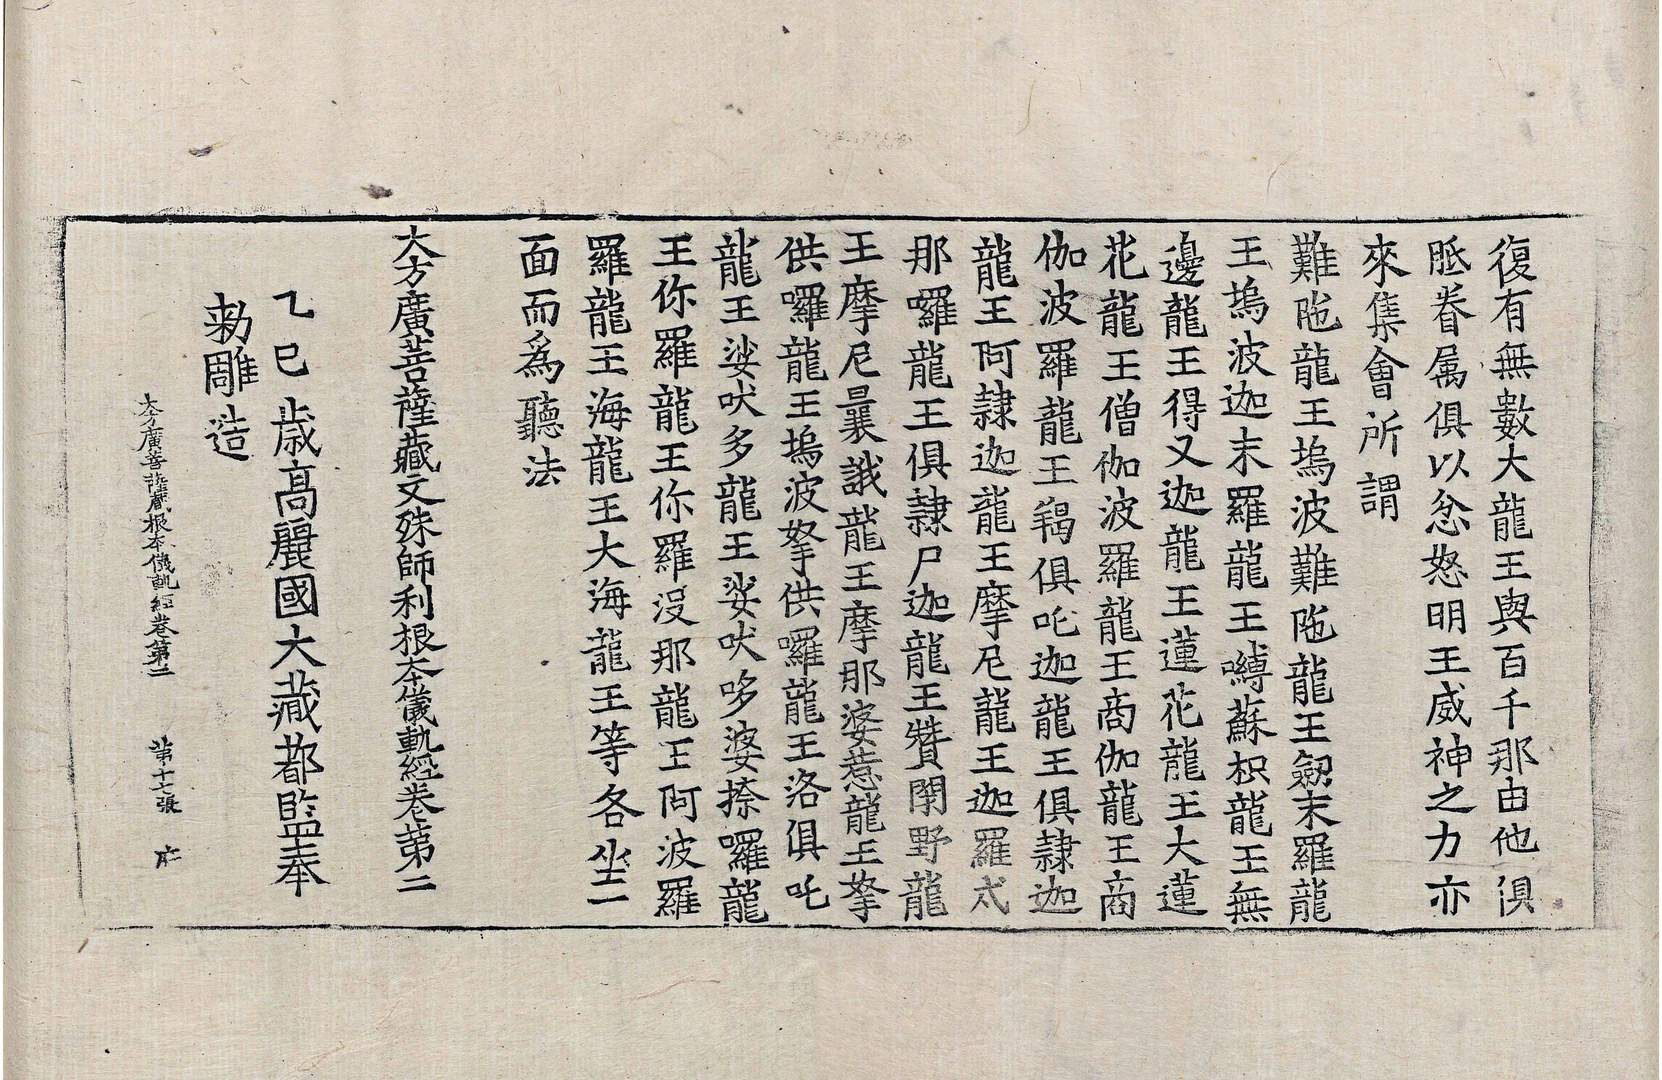 復有無數大龍王與百千那由他俱
胝眷属俱以忿怒明王威神之力亦
來集會所謂
難陁龍王塢波難陁龍王劒末羅龍
王塢波迦末羅龍王嚩蘇枳龍王無
邊龍王得叉迦龍王蓮花龍王大蓮
花龍王僧伽波羅龍王商伽龍王商
伽波羅龍王羯俱吒迦龍王俱隸迦
龍王阿隸迦龍王摩尼龍王迦羅忒
那囉龍王俱隸尸迦龍王贊閉野龍
王摩尼曩誐龍王摩那婆惹龍王拏
供囉龍王塢波拏供囉龍王洛俱吒
龍王娑吠多龍王娑吠哆婆捺囉龍
王你羅龍王你羅没那龍王阿波羅
羅龍王海龍王大海龍王等各坐二
面而爲聽法
大方廣菩薩藏文殊師利根本儀軌經卷第二
乙巳歳高麗國大藏都監奉
勑雕造
大方廣菩薩藏根本儀軌經卷第二 第十七張